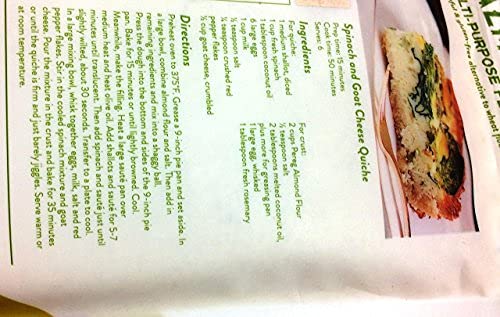 LTI-PURPOSE F
-free alternative to
Spinach and Goat Cheese Quiche
Prep time: 15 minutes
Cook time: 50 minutes
Serves: 6
Ingredients
For quiche:
1 medium shallot, diced
1 cup fresh spinach
1 tablespoon coconut oil
6 large eggs
1 cup milk
½ teaspoon salt
teaspoon crushed red
pepper flakes
½ cup goat cheese, crumbled
For crust:
2 cups Pereg Almond Flour
½ teaspoon salt
2 tablespoons melted coconut oil,
plus more for greasing pan
1 large egg, whisked
1 tablespoon fresh rosemary
Directions
Preheat oven to 375°F. Grease a 9-inch pie pan and set aside. In
a large bowl, combine almond flour and salt. Then add in
remaining ingredients and mix into a soggy ball.
Press the dough into the bottom and sides of the 9-inch pie
pan. Bake for 15 minutes or until lightly browned. Cool.
Meanwhile, make the filling. Heat a large saute pan over
medium heat and heat olive oil. Add shallots and sauté for 5-7
minutes until translucent. Then add spinach and sauté just until
lightly wilted, about 30 seconds. Transfer to a plate to cool.
In a large mixing bowl, whisk together eggs, milk, salt and red
pepper flakes. Stir in the cooled spinach mixture and goat
cheese. Pour the mixture in the crust and bake for 35 minutes
or until the quiche is firm and just barely jiggles. Serve warm or
at room temperature.